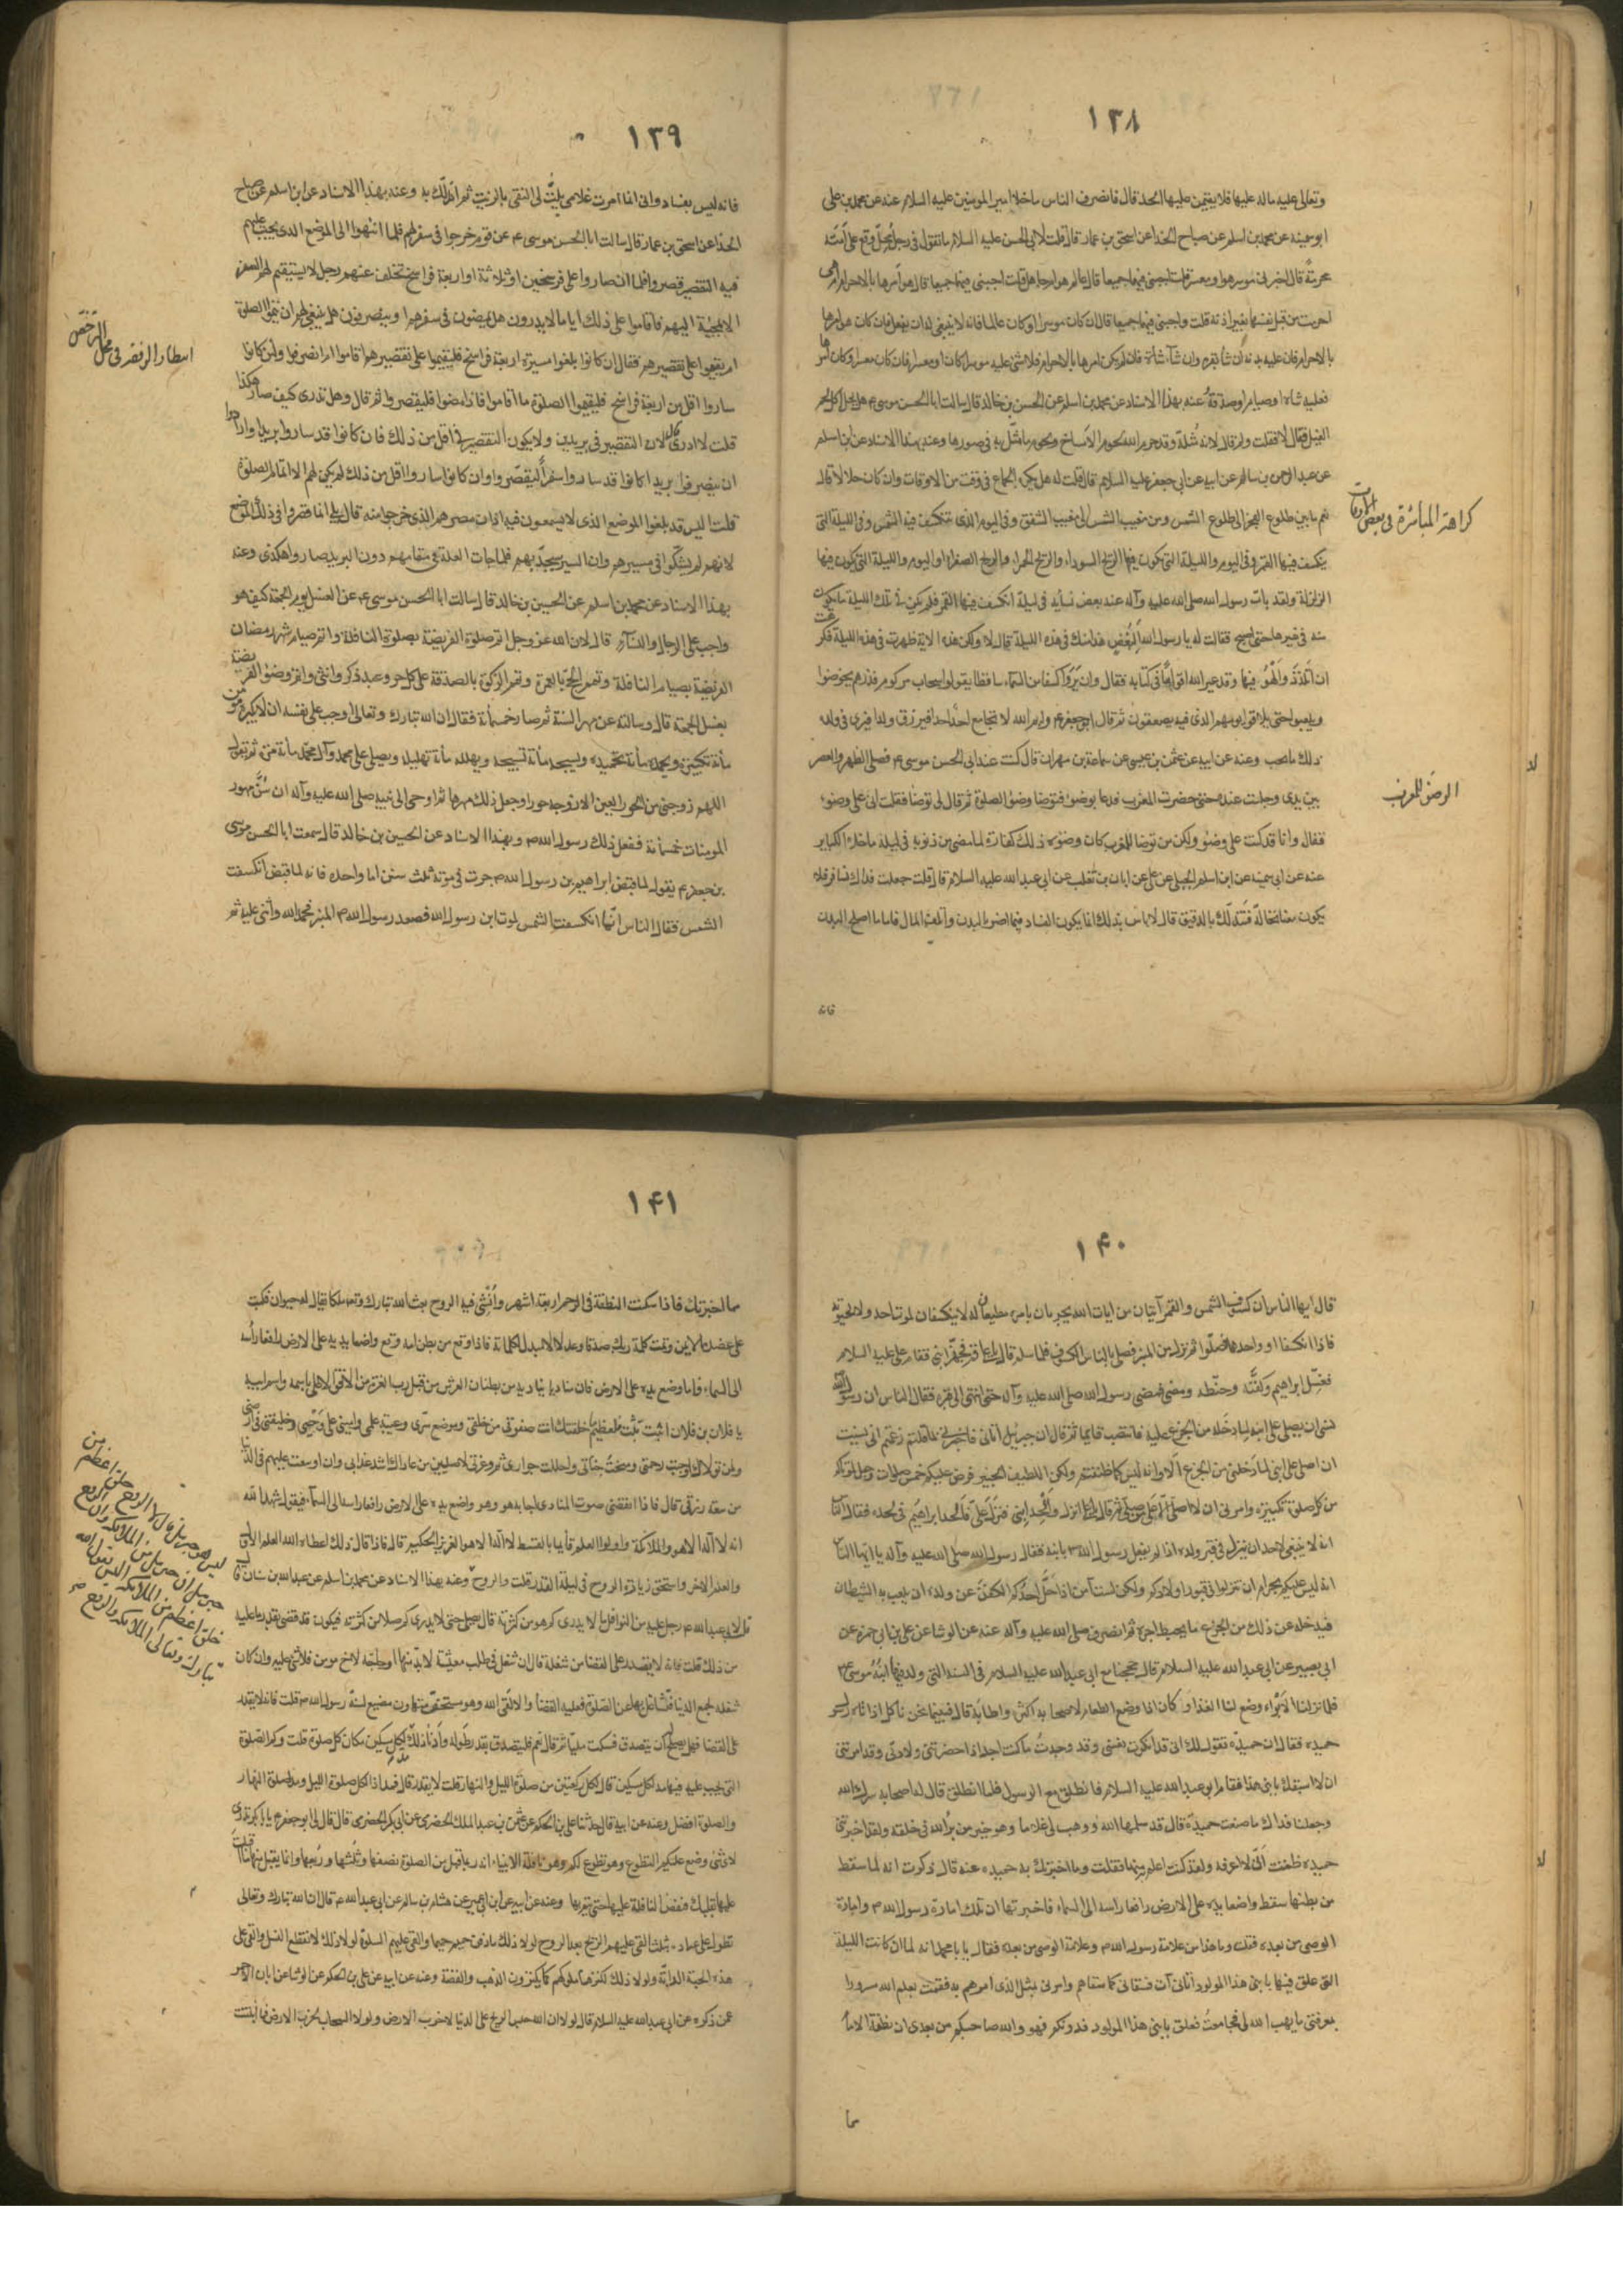 ١٣٨
وتعالى عليه ماله عليها فلا يقيمن عليها الحد قال فانصرف الناس ماخلا امير المومنين عليه السلام عنه عن محمد بن على
ابو سمينه عن محمد بن اسلم عن صباح الحذا عن اسحق بن عمار قال قلت لابى الحسن عليه السلام ما تقول فى رجل محل وقع على امته
محرمة قال اخبرنى موسر هو او معسر قلت اجبنى فيهما جميعا قال عالم هو ام جاهل قلت اجبنى فيهما جميعا قال هو امرها بالاحرام ام هى
احرمت من قبل نفسها بغير اذنه قلت واجبنى فيهما جميعا قال ان كان موسرا وكان عالما فانه لا ينبغى له ان يفعل فان كان هو امرها
بالاحرام فان عليه بدنه ان شاء بقرة وان شاء شاة فان لم يكن امرها بالاحرام فلا شئ عليه موسرا كان او معسرا فان كان معسرا وكان امرها
فعليه شاه او صيام او صدقة عنه بهذا الاسناد عن محمد بن اسلم عن الحسين بن خالد قال سالت ابا الحسن موسى ع هل يحل اكل لحم
الفيل فقال لا فقلت ولم قال لانه مُثلة وقد حرم الله لحوم الامساخ ولحم ما مثّل به فى صورها وعنه بهذا الاسناد عن ابن اسلم
عن عبد الرحمن بن سالم عن ابيه عن ابى جعفر عليه السلام قال قلت له هل يكره الجماع فى وقت من الاوقات وان كان حلالا قال
نعم ما بين طلوع الفجر الى طلوع الشمس ومن مغيب الشمس الى مغيب الشفق وفى اليوم الذى تنكسف فيه الشمس وفى الليلة التى
ينكسف فيها القمر وفى اليوم والليلة التى تكون فيها الريح السوداء والريح الحمراء والريح الصفراء او اليوم والليلة التى يكون فيها
الزلزلة ولقد بات رسول الله صلى الله عليه وآله عند بعض نسائه فى ليلة انكسف فيها القمر فلم يكن فى تلك الليلة ما يكون
منه فى غيرها حتى اصبح فقالت له يا رسول الله البغض هذا منك فى هذه الليلة قال لا ولكن هذه الاية ظهرت فى هذه الليلة فكرهت
ان اتلذذ وَالْهُوَ فيها وقد عير الله اقواماً فى كتابه فقال وان يروا كسفا من السماء ساقطا يقولوا سحاب مركوم فذرهم يخوضوا
ويلعبوا حتى يلاقوا يومهم الذى فيه يصعقون ثم قال ابو جعفر ع وايم الله لا يجامع احدٌ احدا فيرزق ولدا فيرى فى ولده
ذلك ما يحب وعنه عن ابيه عن عثمن بن عيسى عن سماعة بن مهران قال كنت عند ابى الحسن موسى ع فصلى الظهر والعصر
بين يدى وجلست عنده حتى حضرت المغرب فدعا بوضوء فتوضا وضوء الصلوة ثم قال لى توضا فقلت انى على وضوء
فقال وانا قد كنت على وضوء ولكن من توضا للمغرب كان وضوءه ذلك كفارة لما مضى من ذنوبه فى ليلة ماخلا الكباير
عنه عن ابى سمينه عن ابن اسلم الجبلى عن على عن ابان بن تغلب عن ابى عبد الله عليه السلام قال قلت جعلت فداك نسافر فلا
يكون معنا نخالة فنتدلك بالدقيق قال لا باس بذلك انما يكون الفساد فيما اضر بالبدن واتلف المال فاما ما اصلح البدن
فانه
كراهة المباشرة فى بعض الاوقات
الوضوء للمغرب
١٣٩
فانه ليس بفساد وانى انما امرت غلامى يلتُّ لى النقى بالزيت ثم اتدلّك به وعنه بهذا الاسناد عن ابن اسلم عن صباح
الحذا عن اسحق بن عمار قال سالت ابا الحسن موسى ع عن قوم خرجوا فى سفر لهم فلما انتهوا الى الموضع الذى يجب عليهم
فيه التقصير قصروا فلما ان صاروا على فرسخين او ثلاثة او اربعة فراسخ تخلف عنهم رجل لا يستقيم لهم السفر
الا بمجيئه اليهم فاقاموا على ذلك اياما لا يدرون هل يمضون فى سفرهم او ينصرفون هل ينبغى لهم ان يتموا الصلوة
ام يقيموا على تقصيرهم فقال ان كانوا بلغوا مسيرة اربعة فراسخ فليقيموا على تقصيرهم اقاموا ام انصرفوا وان كانوا
ساروا اقل من اربعة فراسخ فليقيموا الصلوة ما اقاموا فاذا مضوا فليقصروا ثم قال وهل تدرى كيف صار هكذا
قلت لا ادرى قال لان التقصير فى بريدين ولا يكون التقصير فى اقل من ذلك فان كانوا قد ساروا بريدا وارادوا
ان ينصرفوا بريدا كانوا قد ساروا سفر التقصير وان كانوا ساروا اقل من ذلك لم يكن لهم الا اتمام الصلوة
قلت اليس قد بلغوا الموضع الذى لا يسمعون فيه اذان مصرهم الذى خرجوا منه قال بلى انما قصروا فى ذلك الموضع
لانهم لم يشكّوا فى مسيرهم وان السير سيجدّ بهم فلما جات العلة فى مقامهم دون البريد صاروا هكذى وعنه
بهذا الاسناد عن محمد بن اسلم عن الحسين بن خالد قال سالت ابا الحسن موسى ع عن الغسل يوم الجمعة كيف هو
واجب على الرجال والنساء قال لان الله عز وجل اتم صلوة الفريضة بصلوة النافلة واتم صيام شهر رمضان
الفريضة بصيام النافلة وتمم الحج بالعمرة وتمم الزكوة بالصدقة على كل حر وعبد ذكر وانثى واتم وضوء الفريضة
بغسل الجمعة قال وسالته عن مهر السنة ثم صار خمسمائة فقال ان الله تبارك وتعالى اوجب على نفسه ان لا يكبره مومن
مائة تكبيرة ويحمده مائة تحميدة ويسبحه مائة تسبيحة ويهلله مائة تهليله ويصلى على محمد وآل محمد مائة مرة ثم يقول
اللهم زوجنى من الحور العين الا زوجه حورا وجعل ذلك مهرها ثم اوحى الى نبيه صلى الله عليه وآله ان سُنَّ مهور
المومنات خمسمائة ففعل ذلك رسول الله ص وبهذا الاسناد عن الحسين بن خالد قال سمعت ابا الحسن موسى
بن جعفر ع يقول لما قبض ابراهيم بن رسول الله ص جرت فى موته ثلث سنن اما واحده فانه لما قبض انكسفت
الشمس فقال الناس انما انكسفت الشمس لموت ابن رسول الله فصعد رسول الله ص المنبر فحمد الله واثنى عليه ثم
محل الترخص
١۴٠
قال ايها الناس ان كسوف الشمس والقمر آيتان من ايات الله يجريان بامره مطيعان له لا ينكسفان لموت احد ولا لحيوته
فاذا انكسفا او واحد منهما فصلّوا ثم نزل من المنبر فصلى بالناس الكسوف فلما سلم قال يا على قم فجهّز ابنى فقام على عليه السلام
فغسّل ابراهيم وكفّنه وحنّطه ومضى فمضى رسول الله صلى الله عليه وآله حتى انتهى الى قبره فقال الناس ان رسول الله
نسى ان يصلى على ابنه لما دخله من الجزع عليه فانتصب قائما ثم قال ان جبرئيل اتانى فاخبرنى بما قلتم زعمتم انى نسيت
ان اصلى على ابنى لما دخلنى من الجزع الا وانه ليس كما ظننتم ولكن اللطيف الخبير فرض عليكم خمس صلوات وجعل لموتاكم
من كل صلوة تكبيرة وامرنى ان لا اصلّى الّا على من صلّى ثم قال يا على انزل والْحد ابنى فنزل على فالحد ابراهيم فى لحده فقال الناس
انه لا ينبغى لاحد ان ينزل فى قبر ولده اذ لم يفعل رسول الله ص بابنه فقال رسول الله صلى الله عليه وآله يا ايها الناس
انه ليس عليكم بحرام ان تنزلوا فى قبور اولادكم ولكن لست آمن اذا حَلَّ احدكم الكفن عن ولده ان يلعب به الشيطان
فيدخله عن ذلك من الجزع ما يحبط اجره ثم انصرف صلى الله عليه وآله عنه عن الوشا عن على بن ابى حمزه عن
ابى بصير عن ابى عبد الله عليه السلام قال حججنا مع ابى عبد الله عليه السلام فى السنه التى ولد فيها ابنه موسى ع
فلما نزلنا الابواء وضع لنا الغذاء وكان اذا وضع الطعام لاصحابه اكثره واطابه قال فبينما نحن ناكل اذ اتاه رسول
حميده فقال ان حميده تقول لك انى قد انكرت نفسى وقد وجدت ما كنت اجد اذا حضرتنى ولادتى وقد امرتنى
ان لا اسبقك بابنى هذا فقام ابو عبد الله عليه السلام فانطلق مع الرسول فلما انطلق قال له اصحابه سرك الله
وجعلنا فداك ما صنعت حميدة قال قد سلمها الله ووهب لى غلاما وهو خير من برأ الله فى خلقه ولقد اخبرتنى
حميده ظننت انى لا اعرفه ولقد كنت اعلم به منها فقلت وما اخبرتك به حميده عنه قال ذكرت انه لما سقط
من بطنها سقط واضعا يده على الارض رافعا راسه الى السماء فاخبرتها ان تلك امارة رسول الله ص وامارة
الوصى من بعده فقلت وما هذا من علامة رسول الله ص وعلامة الوصى من بعده فقال يا با محمد انه لما ان كانت الليلة
التى علق فيها بابنى هذا المولود اتانى آت فسقانى كما سقاهم وامرنى بمثل الذى امرهم به فقمت بعلم الله مسرورا
بمعرفتى ما يهب الله لى فجامعت فعلق بابنى هذا المولود فدونكم فهو والله صاحبكم من بعدى ان نطفة الامام
مما
١۴١
مما اخبرتك فاذا سكنت النطفة فى الرحم اربعة اشهر وأُنشئ فيه الروح بعث الله تبارك وتعالى ملكا يقال له حيوان فكتب
على عضده الايمن وتمت كلمة ربك صدقا وعدلا لا مبدل لكلماته فاذا وقع من بطن امه وقع واضعا يديه على الارض رافعا راسه
الى السماء فاما وضع يده على الارض فان مناديا يناديه من بطنان العرش من قبل رب العزة من الافق الاعلى باسمه واسم ابيه
يا فلان بن فلان اثبت ثبّت مليا لعظيم خلقتك انت صفوتى من خلقى وموضع سرى وعيبة علمى وامينى على وحيى وخليفتى فى ارضى
ولمن تولاك اوجبت رحمتى ومنحت جنانى واحللت جوارى ثم وعزتى لاصلين من عاداك اشد عذابى وان اوسعت عليهم فى الدنيا
من سعة رزقى قال فاذا انقضى صوت المنادى اجابه هو وهو واضع يده على الارض رافعا راسه الى السماء فيقول شهد الله
انه لا آله الا هو والملائكة واولوا العلم قائما بالقسط لا آله الا هو العزيز الحكيم قال فاذا قال ذلك اعطاه الله العلم الاول
والعلم الاخر واستحق زيارة الروح فى ليلة القدر قلت والروح وعنه بهذا الاسناد عن محمد بن اسلم عن عبد الله بن سنان قال
قلت لابى عبد الله ع رجل عليه من النوافل ما لا يدرى كم هو من كثرته قال يصلى حتى لا يدرى كم صلا من كثرته فيكون قد قضى بقدر ما عليه
من ذلك قلت فانه لا يقدر على القضا من شغله قال ان شغل فى طلب معيشة لابدّ منها او حاجة لاخ مومن فلا شئ عليه وان كان
شغله لجمع الدنيا فتشاغل بها عن الصلوة فعليه القضا والا لقى الله وهو مستخف متهاون مضيع لسنّة رسول الله ص قلت فانه لا يقدر
على القضا فهل يصلح ان يتصدق فسكت مليّا ثم قال نعم فليتصدق بقدر طوله وأدنى ذلك مدّ لكل مسكين مكان كل صلوة قلت وكم الصلوة
التى يجب عليه فيها مد لكل مسكين قال لكل ركعتين من صلوة الليل والنهار قلت لا يقدر قال فمد اذا لكل صلوة الليل ومد لصلوة النهار
والصلوة افضل وعنه عن ابيه قال حدثنا على بن الحكم عن عثمن بن عبد الملك الحضرمى عن ابى بكر الحضرمى قال قال لى ابو جعفر ع يا با بكر تدرى
لاى شئ وضع عليكم التطوع وهو تطوع لكم وهو نافلة الانبياء انه ربما قبل من الصلوة نصفها وثلثها وربعها وانما يقبل منها ما اقبلت
عليها بقلبك ففضل النافلة عليها حتى تتم بها وعنه عن ابيه عن ابن ابى عمير عن هشام بن سالم عن ابى عبد الله ع قال ان الله تبارك وتعالى
تطول على عباده بثلث القى عليهم الريح بعد الروح لولا ذلك ما دفن حميم حميما والقى عليهم السلوة لولا ذلك لانقطع النسل والقى على
هذه الحبة الدابّة ولولا ذلك لكنزها ملوكهم كما يكنزون الذهب والفضة وعنه عن ابيه عن على بن الحكم عن الوشا عن ابان الاحمر
عمن ذكره عن ابى عبد الله عليه السلام قال لولا ان الله حبس الريح على الدنيا لاخربت الارض ولولا السحاب لخرب الارض فما انبتت
ليس هو جبرئيل قال لا الروح خلق اعظم من
جبرئيل ان جبرئيل من الملائكة وان الروح
خلق اعظم من الملائكة اليس يقول الله
تبارك وتعالى تنزل الملائكة والروح